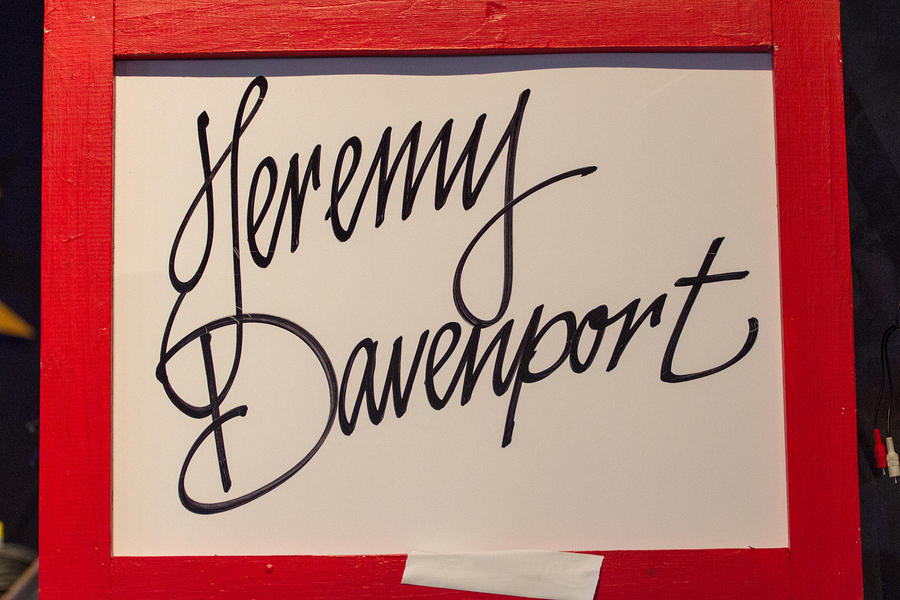 Jeremy
Davenport